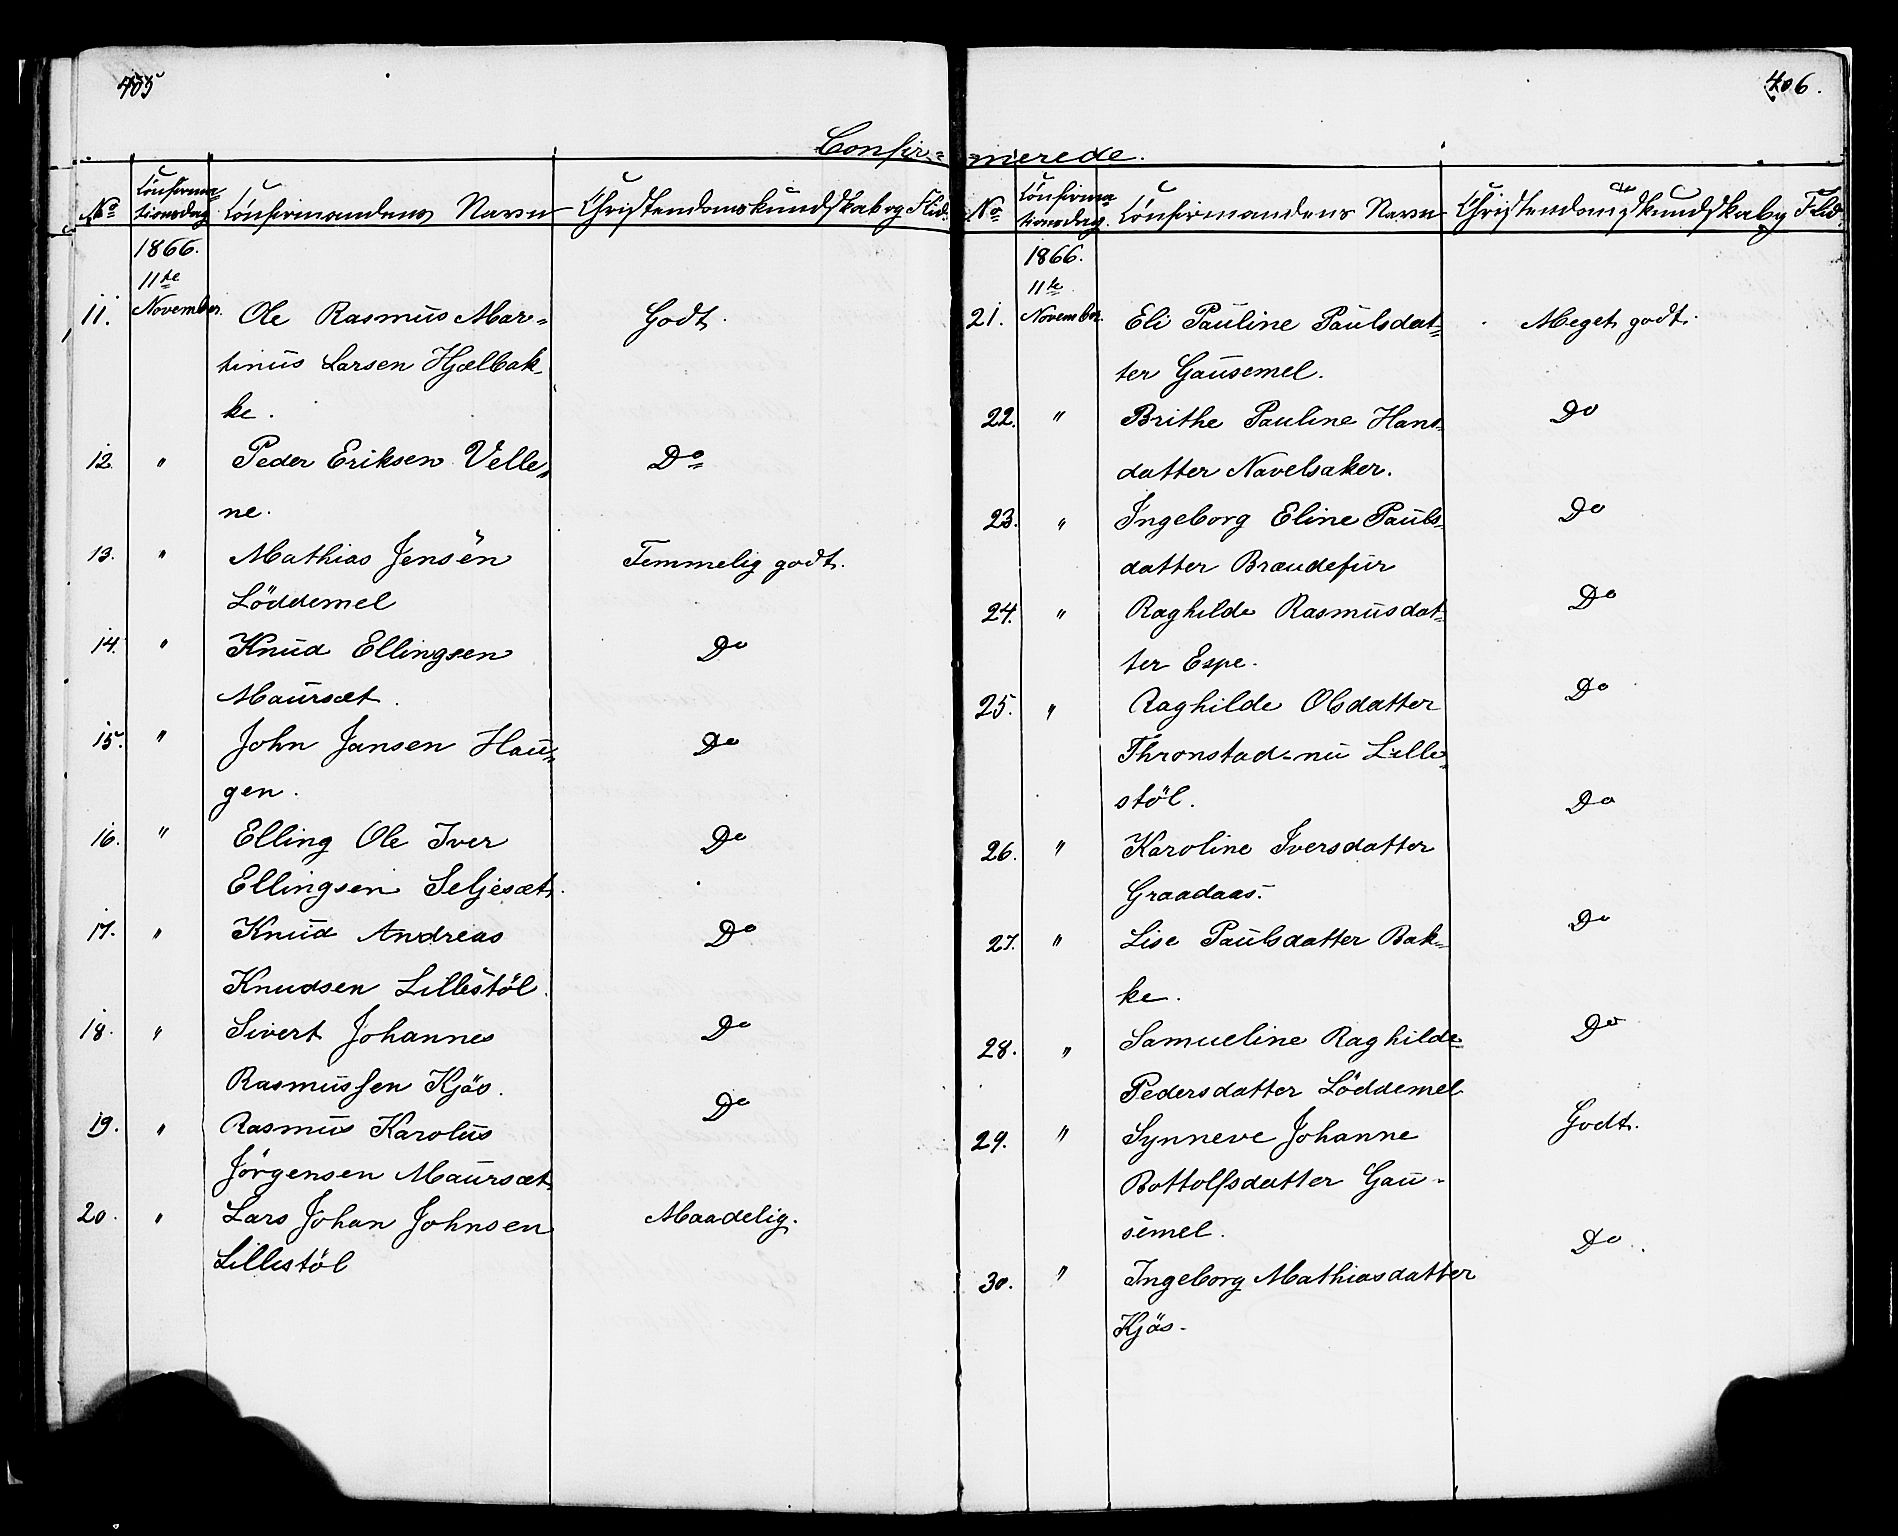 405
Confir=
No Confirma-
tionsdag Confirmandens Navn Christendomskundskab og Flid.
1866.
11te
11. November. Ole Rasmus Mar=
tinus Larsen Hjælbak-
ke.
Godt.
12. " Peder Eriksen Velle=
ne.
Do
13. " Mathias Jensen
Löddemel
Temmelig godt.
14. " Knud Ellingsen
Maursæt.
Do
15. " John Jansen Hau=
gen.
Do
16. " Elling Ole Iver
Ellingsen Seljesæt.
Do
17. " Knud Andreas
Knudsen Lillestöl.
Do
18. " Sivert Johannes
Rasmussen Kjös.
Do
19. " Rasmus Karolus
Jörgensen Maursæt.
Do
20. " Lars Johan Johnsen
Lillestöl
Maadelig.
406.
=merede.
No Confirma-
tionsdag. Confirmandens Navn Christendomskundskab og Flid.
1866.
11te
21. November. Eli Pauline Paulsdat=
ter Gausemel.
Meget godt.
22. " Brithe Pauline Hans-
datter Navelsaker.
Do
23. " Ingeborg Eline Pauls-
datter Braudefur
Do
24. " Raghilde Rasmusdat=
ter Espe.
Do
25. " Raghilde Olsdatter
Thronstad-nu Lille=
stöl.
Do
26. " Karoline Iversdatter
Graadaas.
Do
27. " Lise Paulsdatter Bak=
ke.
Do
28. " Samueline Raghilde
Pedersdatter Löddemel
Do
29. " Synneve Johanne
Bottolfsdatter Gau-
semel.
Godt.
30. " Ingeborg Mathiasdatter
Kjös.
Do.